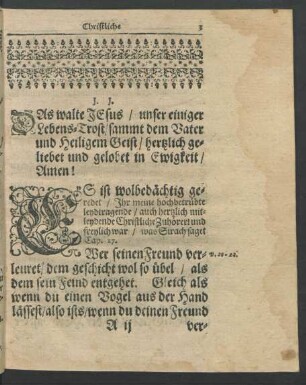 Christliche 3
J. J.
DAs walte JEsus / unser einiger
Lebens-Trost / sammt dem Vater
und Heiligem Geist / hertzlich ge-
liebet und gelobet in Ewigkeit /
Amen!
ES ist wolbedächtig ge-
redet / Ihr meine hochbetrübte
leydtragende / auch hertzlich mit-
leydende Christliche Zuhörer und
freylich war / was Sirach saget
Cap. 27.
Wer seinen Freund ver-
leuret / dem geschicht wol so übel / als
dem sein Feind entgehet. Gleich als
wenn du einen Vogel aus der Hand
lässest / also ists / wenn du deinen Freund
A ij ver-